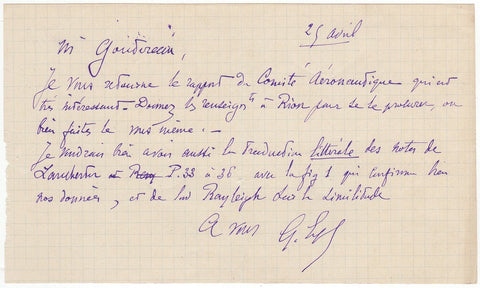 25 avril
Mr Gouderceau,
Je vous retourne le rapport du Comité Aéronautique qui est
très intéressant. Donnez les renseigts à Rion pour se le procurer, ou
bien faites le vous même. —
Je voudrais bien avoir aussi la traduction littérale des notes de
Lanchester et P. 33 à 36 avec la fig 1 qui confirme bien
nos données, et de lord Rayleigh sur la similitude
A vous